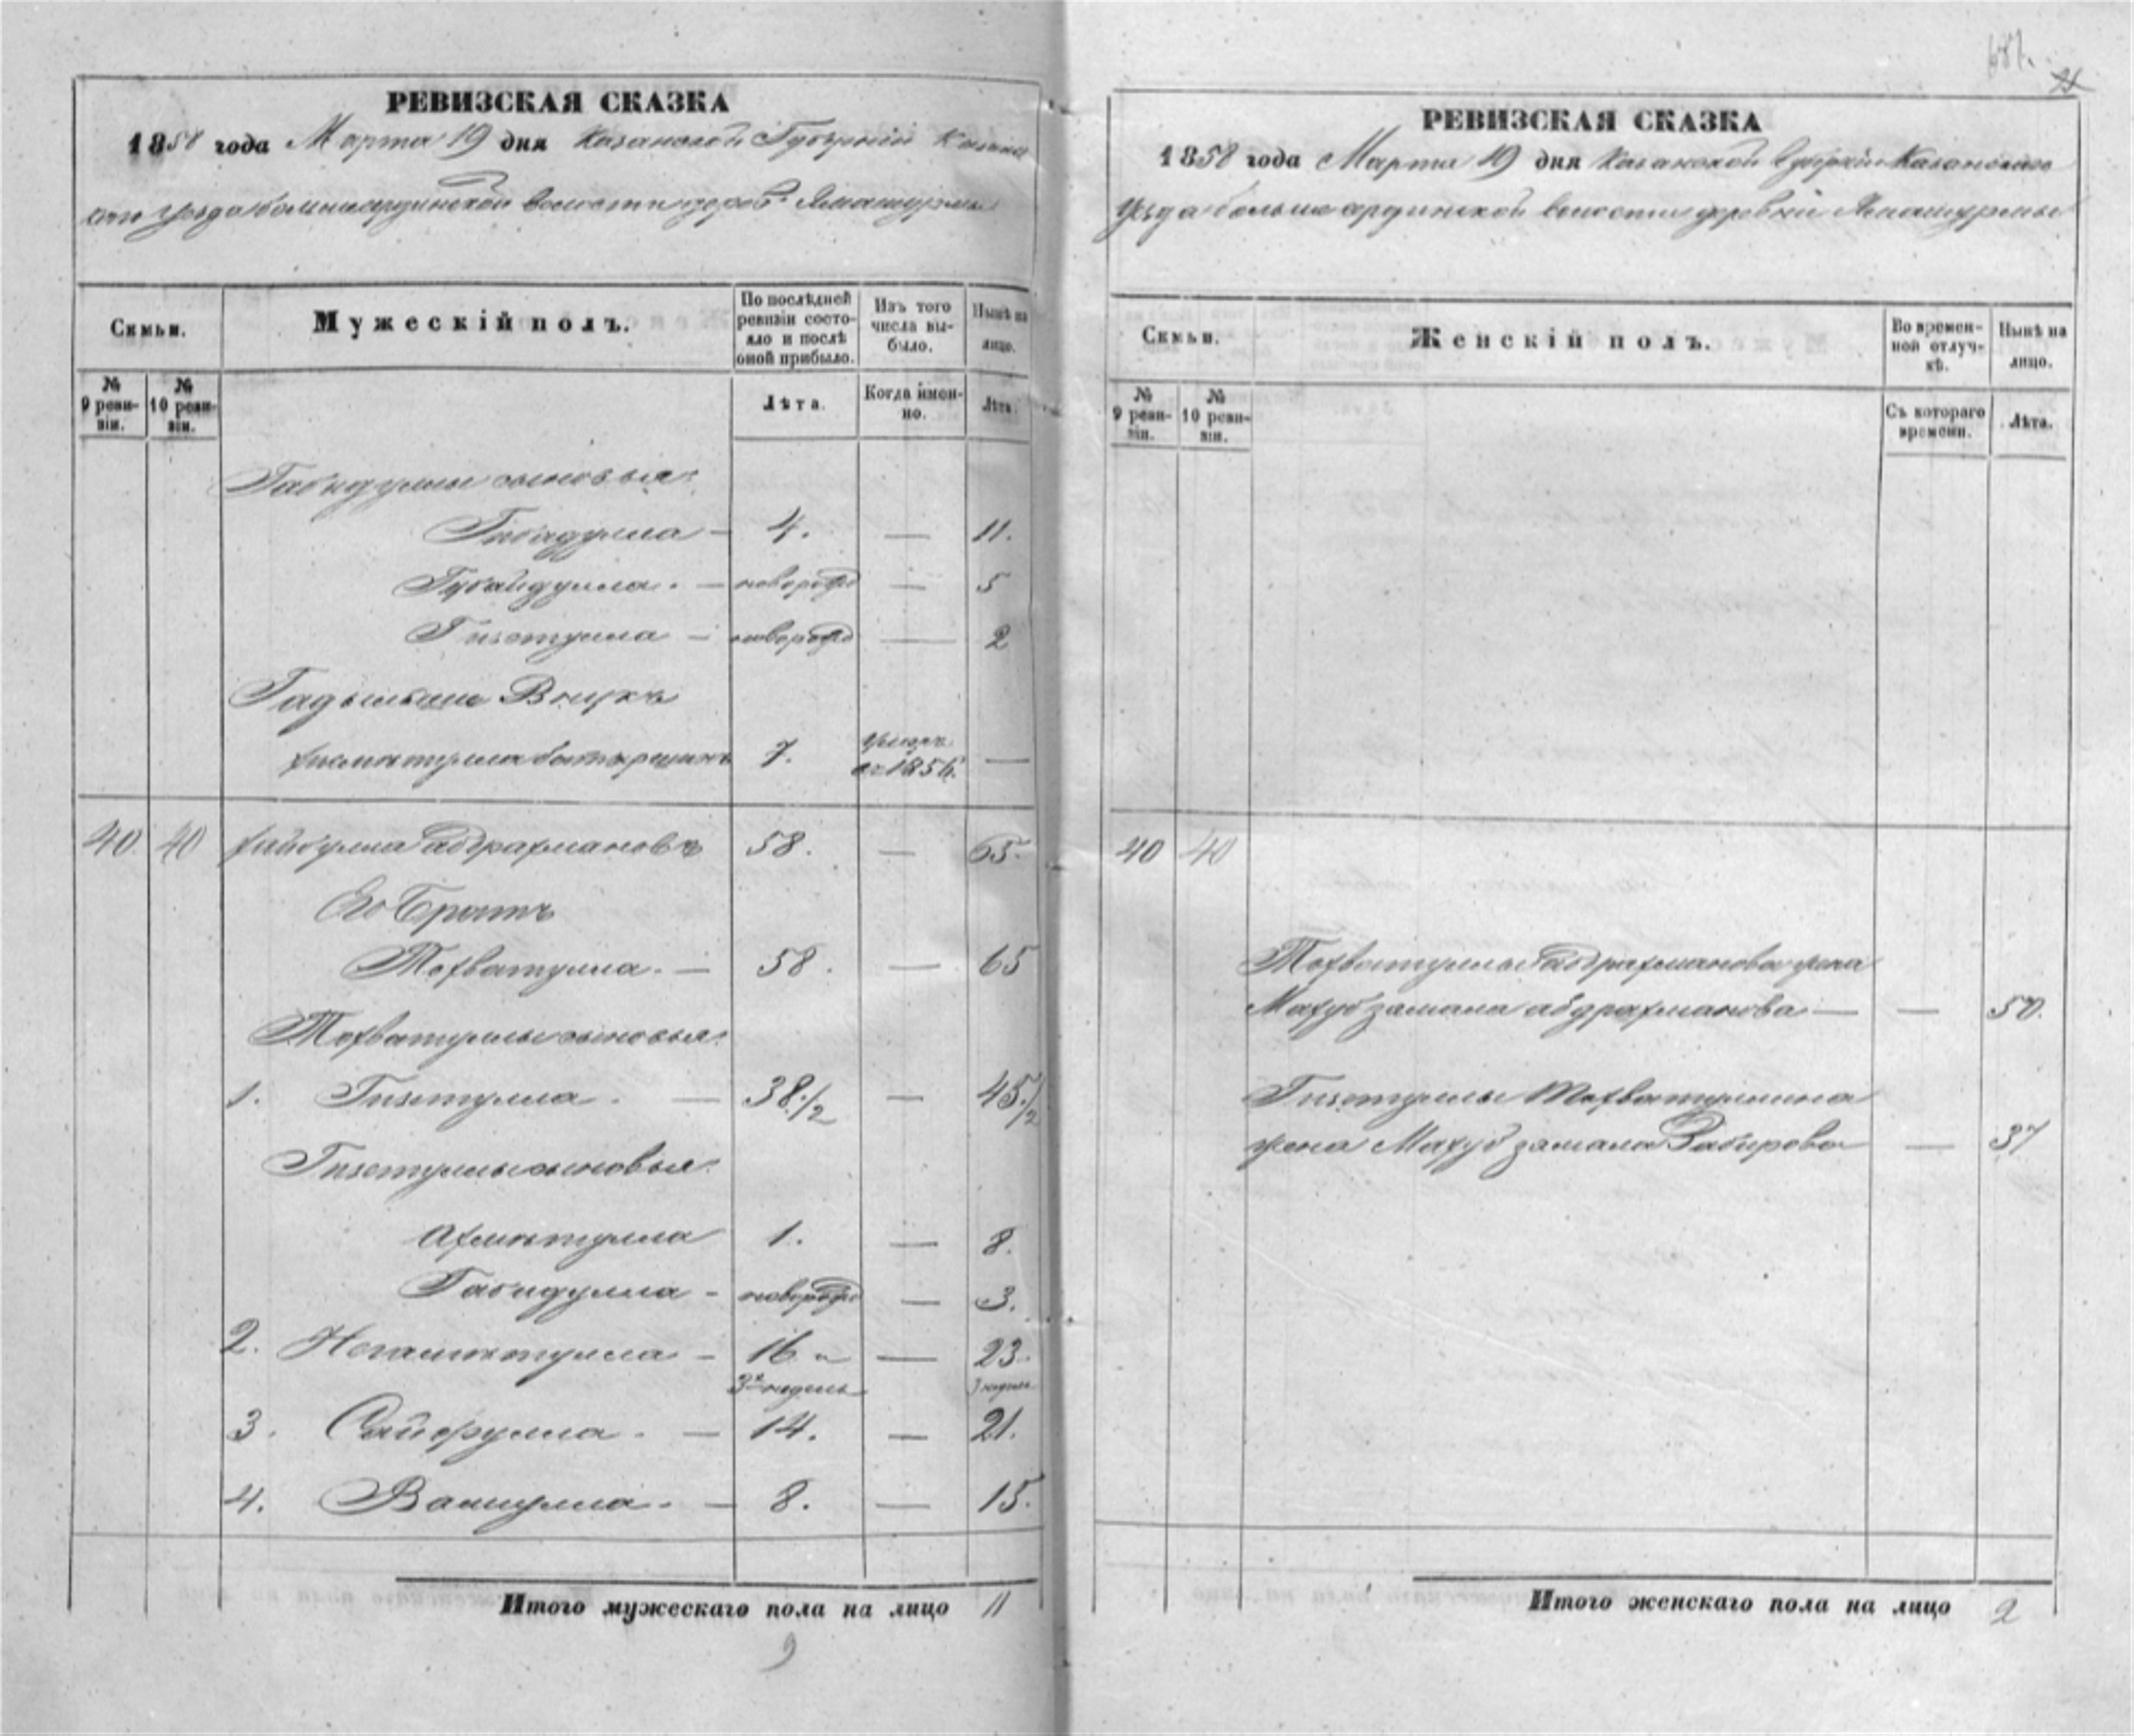 РЕВИЗСКАЯ СКАЗКА
1858 года Марта 19 дня Казанской Губерніи Казанс
каго уѣзда большеардинской волости дерев.
Семьи.
Мужескій полъ.
По послѣдней ревизіи состояло и послѣ оной прибыло.
Изъ того числа выбыло.
Нынѣ на лицо.
№ 9 ревизіи.
№ 10 ревизіи.
Лѣта.
Когда именно.
Лѣта.
Габидуллы сыновья:
4. — 11.
Губайдулла. — новорожд — 5
Гизетулла — новорожд — 2
Внукъ
7. умеръ въ 1856. —
40 40 Хайбулла Абдрахмановъ 58. — 65.
Его Братъ
Тохватулла. — 58. — 65
Тохватуллы сыновья:
1. Гизетулла. — 38 1/2 — 45 1/2
Гизетуллы сыновья:
Ахметулла 1. — 8.
Габидулла — новорожд — 3.
2. — 16 — 23.
3 недель 3 недель
3. Сайфулла. — 14. — 21.
4. Валиулла. — 8. — 15.
Итого мужескаго пола на лицо 11
9
681.
РЕВИЗСКАЯ СКАЗКА
1858 года Марта 19 дня Казанской Губерніи Казанскаго
уѣзда большеардинской волости деревни
Семьи.
Женскій полъ.
Во временной отлучкѣ.
Нынѣ на лицо.
№ 9 ревизіи.
№ 10 ревизіи.
Съ котораго времени.
Лѣта.
40 40
Тохватуллы Абдрахманова жена
Махубзамала абдрахманова — — 50.
Гизетуллы Тохватуллина
жена Махубзамала Забирова — 37
Итого женскаго пола на лицо 2